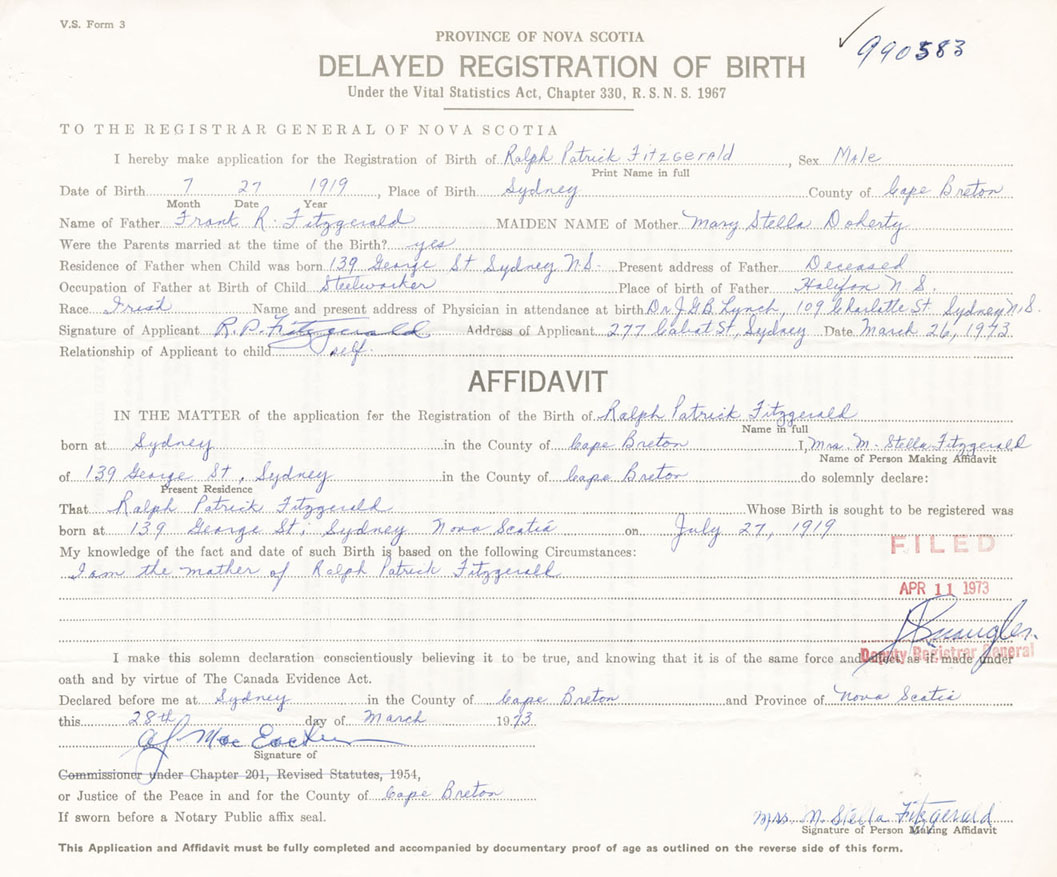 V.S. Form 3
PROVINCE OF NOVA SCOTIA
990583
DELAYED REGISTRATION OF BIRTH
Under the Vital Statistics Act, Chapter 330, R. S. N. S. 1967
TO THE REGISTRAR GENERAL OF NOVA SCOTIA
I hereby make application for the Registration of Birth of Ralph Patrick Fitzgerald, Sex Male
Print Name in full
Date of Birth 7 27 1919, Place of Birth Sydney County of Cape Breton
Month Date Year
Name of Father Frank R. Fitzgerald MAIDEN NAME of Mother Mary Stella Doherty
Were the Parents married at the time of the Birth? yes
Residence of Father when Child was born 139 George St Sydney N.S. Present address of Father Deceased
Occupation of Father at Birth of Child Steelworker Place of birth of Father Halifax N.S.
Race Irish Name and present address of Physician in attendance at birth Dr. J.G.B. Lynch, 109 Charlotte St Sydney N.S.
Signature of Applicant R.P. Fitzgerald Address of Applicant 277 Cabot St, Sydney Date March 26, 1973
Relationship of Applicant to child self.
AFFIDAVIT
IN THE MATTER of the application for the Registration of the Birth of Ralph Patrick Fitzgerald
Name in full
born at Sydney in the County of Cape Breton I, Mrs. M. Stella Fitzgerald
Name of Person Making Affidavit
of 139 George St, Sydney in the County of Cape Breton do solemnly declare:
Present Residence
That Ralph Patrick Fitzgerald Whose Birth is sought to be registered was
born at 139 George St, Sydney Nova Scotia on July 27, 1919
My knowledge of the fact and date of such Birth is based on the following Circumstances:
FILED
I am the mother of Ralph Patrick Fitzgerald
APR 11 1973
Deputy Registrar General
I make this solemn declaration conscientiously believing it to be true, and knowing that it is of the same force and effect, as if made under
oath and by virtue of The Canada Evidence Act.
Declared before me at Sydney in the County of Cape Breton and Province of Nova Scotia
this 28th day of March 1973
Signature of
Commissioner under Chapter 201, Revised Statutes, 1954,
or Justice of the Peace in and for the County of Cape Breton
If sworn before a Notary Public affix seal.
Mrs. M. Stella Fitzgerald
Signature of Person Making Affidavit
This Application and Affidavit must be fully completed and accompanied by documentary proof of age as outlined on the reverse side of this form.